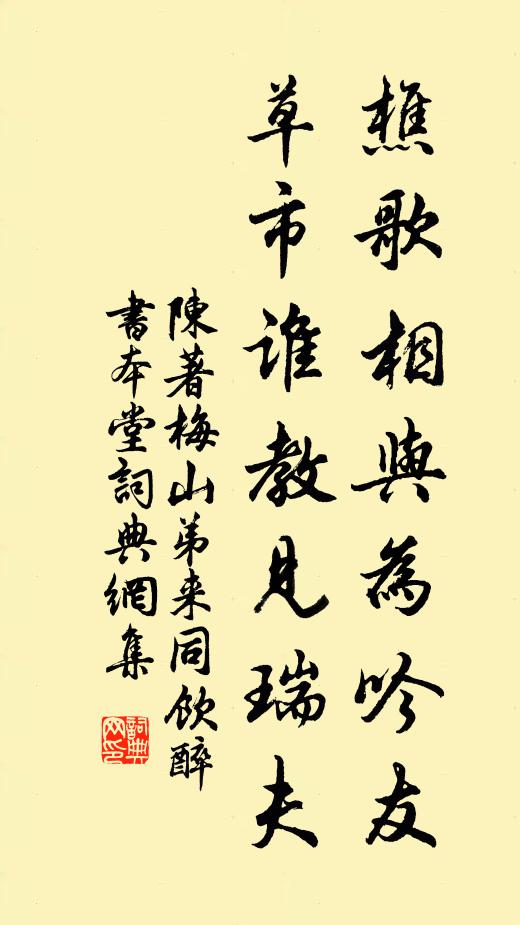 樵歌相與為吟友
草市誰教見瑞夫
陳著梅山弟来同飲醉
書本堂詞典網集
詞典網印